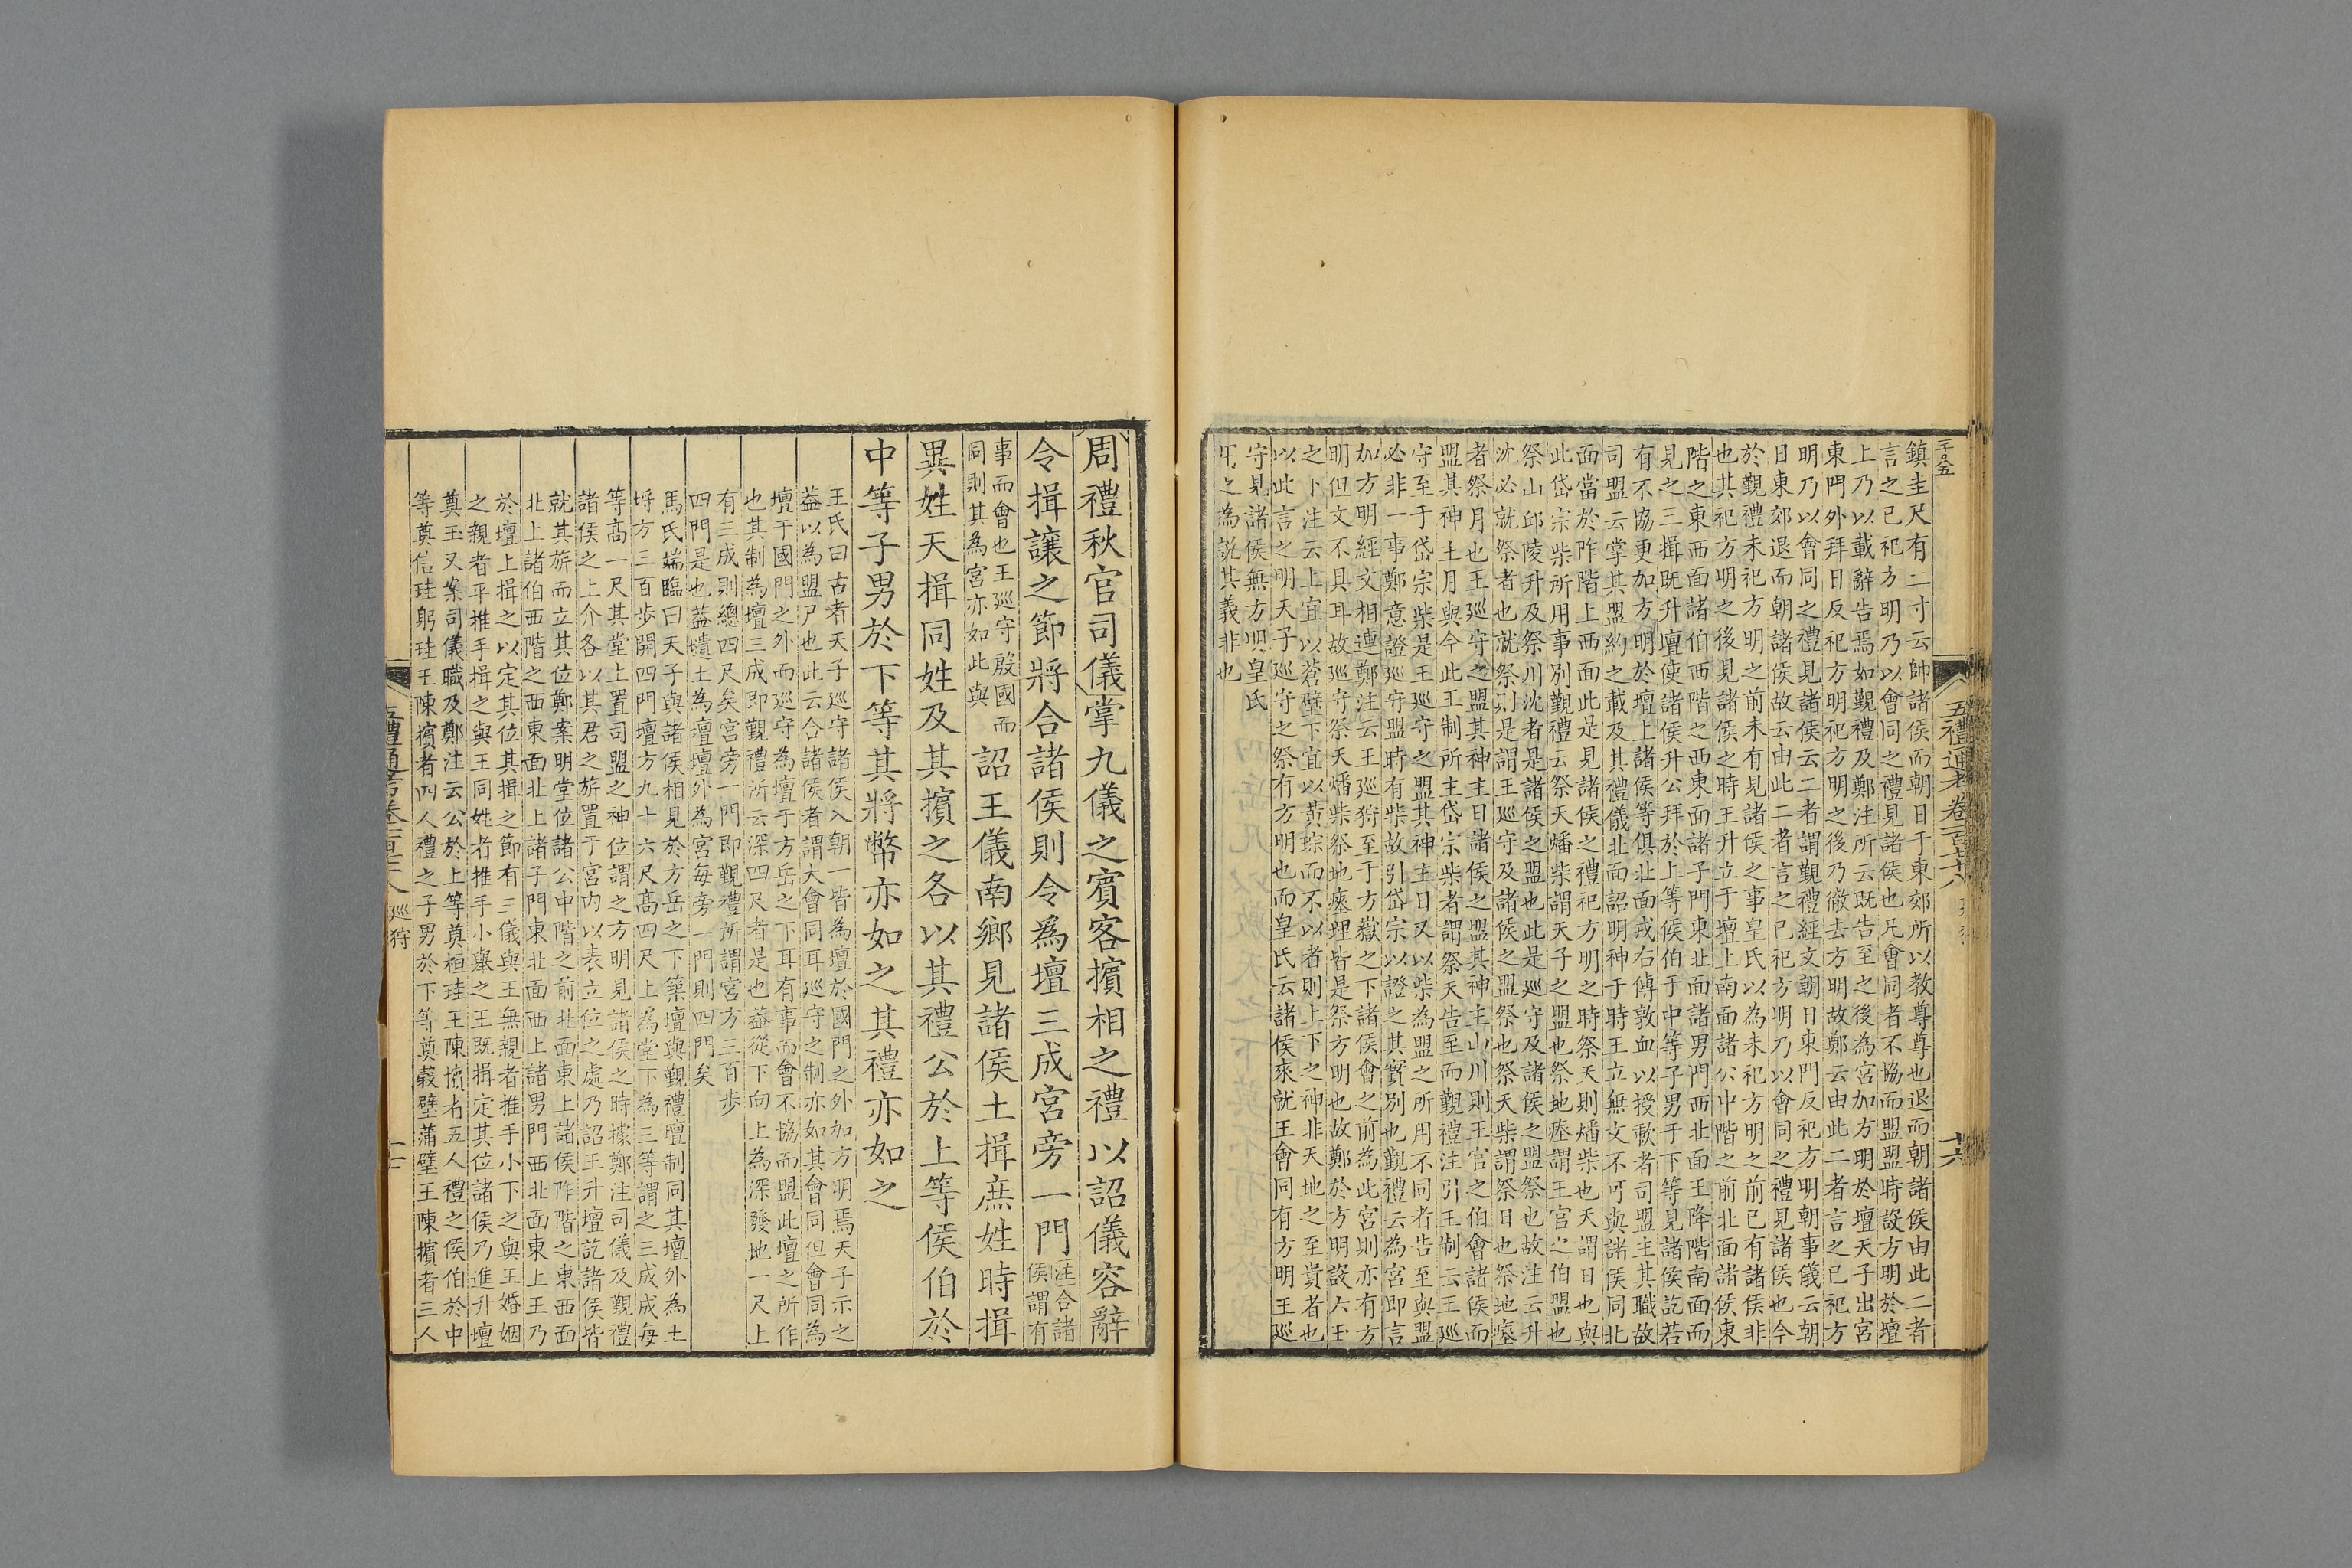 五禮通考卷一百七十八
十六
鎮圭尺有二寸云帥諸侯而朝日于東郊所以教尊尊也退而朝諸侯由此二者
言之已祀方明乃以會同之禮見諸侯也凡會同者不協而盟盟時設方明於壇
上乃以載辭告焉如覲禮及鄭注所云既告至之後為宮加方明於壇天子出宮
東門外拜日反祀方明祀方明之後乃徹去方明故鄭云由此二者言之已祀方
明乃以會同之禮見諸侯云二者謂覲禮經文朝日東門反祀方明朝事儀云朝
日東郊退而朝諸侯故云由此二者言之已祀方明乃以會同之禮見諸侯也今
於覲禮未祀方明之前未有見諸侯之事皇氏以為未祀方明之前已有諸侯非
也其祀方明之後見諸侯之時王升立于壇上南面諸公中階之前北面諸侯東
階之東西面諸伯西階之西東面諸子門東北面諸男門西北面王降階南面而
見之三揖既升壇使諸侯升公拜於上等侯伯于中等子男于下等見諸侯訖若
有不協更加方明於壇上諸侯等俱北面戎右傳敦血以授歃者司盟主其職故
司盟云掌其盟約之載及其禮儀北面詔明神于時王立無文不可與諸侯同北
面當於阼階上西面此是見諸侯之禮祀方明之時祭天則燔柴也天謂日也與
此岱宗柴所用事別覲禮云祭天燔柴謂天子之盟也祭地瘞謂王官之伯盟也
祭山邱陵升及祭川沈者是諸侯之盟也此是巡守及諸侯之盟祭也故注云升
沈必就祭者也就祭則是謂王巡守及諸侯之盟祭也祭天柴謂祭日也祭地瘞
者祭月也王巡守之盟其神主日諸侯之盟其神主山川則王官之伯會諸侯而
盟其神主月與今此王制所主岱宗柴者謂祭天告至而覲禮注引王制云王巡
守至于岱宗柴是王巡守之盟其神主日又以柴為盟之所用不同者告至與盟
必非一事鄭意證巡守盟時有柴故引岱宗以證之其實別也覲禮云為宮即言
加方明經文相連鄭注云王巡狩至于方嶽之下諸侯會之前為此宮則亦有方
明但文不具耳故巡守祭天燔柴祭地瘞埋皆是祭方明也故鄭於方明設六玉
之下注云上宜以蒼璧下宜以黃琮而不以者則上下之神非天地之至貴者也
以此言之明天子巡守之祭有方明也而皇氏云諸侯來就王會同有方明王巡
守見諸侯無方明皇氏
之為說其義非也
周禮秋官司儀掌九儀之賓客擯相之禮以詔儀容辭
令揖讓之節將合諸侯則令為壇三成宮旁一門注合諸
侯謂有
事而會也王巡守殷國而
同則其為宮亦如此與詔王儀南鄉見諸侯土揖庶姓時揖
異姓天揖同姓及其擯之各以其禮公於上等侯伯於
中等子男於下等其將幣亦如之其禮亦如之
王氏曰古者天子巡守諸侯入朝一皆為壇於國門之外加方明焉天子示之
益以為盟尸也此云合諸侯者謂大會同耳巡守之制亦如其會同但會同為
壇于國門之外而巡守為壇于方岳之下耳有事而會不協而盟此壇之所作
也其制為壇三成即覲禮所云深四尺者是也益從下向上為深發地一尺上
有三成則總四尺矣宮旁一門即覲禮所謂宮方三百步
四門是也益壝土為壇壇外為宮每旁一門則四門矣
馬氏端臨曰天子與諸侯相見於方岳之下築壇與覲禮壇制同其壇外為土
埒方三百步開四門壇方九十六尺高四尺上為堂下為三等謂之三成成每
等高一尺其堂上置司盟之神位謂之方明見諸侯之時據鄭注司儀及覲禮
諸侯之上介各以其君之旂置于宮內以表立位之處乃詔王升壇訖諸侯皆
就其旂而立其位鄭案明堂位諸公中階之前北面東上諸侯阼階之東西面
北上諸伯西階之西東面北上諸子門東北面西上諸男門西北面東上王乃
於壇上揖之以定其位其揖之節有三儀與王無親者推手小下之與王婚姻
之親者平推手揖之與王同姓者推手小舉之王既揖定其位諸侯乃進升壇
奠玉又案司儀職及鄭注云公於上等奠桓珪王陳擯者五人禮之侯伯於中
等奠信珪躬珪王陳擯者四人禮之子男於下等奠穀璧蒲璧王陳擯者三人
巡狩